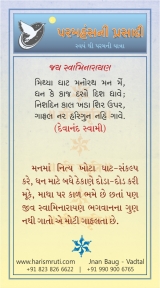 પરમહંસની પ્રસાદી
સ્વયં થી પરમની યાત્રા
જય સ્વામિનારાયણ
મિથ્યા ઘાટ મનોરથ મન મેં,
ધન કે કાજ દસો દિશ ધાવે;
નિશદિન કાલ ખડા શિર ઉપર,
ગાફલ નર હરિગુન નહિં ગાવે.
(દેવાનંદ સ્વામી)
મનમાં નિત્ય ખોટા ઘાટ-સંકલ્પ
કરે, ધન માટે બધે ઠેકાણે દોડા-દોડ કરી
મૂકે, માથા પર કાળ ભમે છે છતાં પણ
જીવ સ્વામિનારાયણ ભગવાનના ગુણ
નથી ગાતો એ મોટી ગાફલતા છે.
www.harismruti.com
Jnan Baug - Vadtal
+91 823 826 6622
+91 990 900 6765